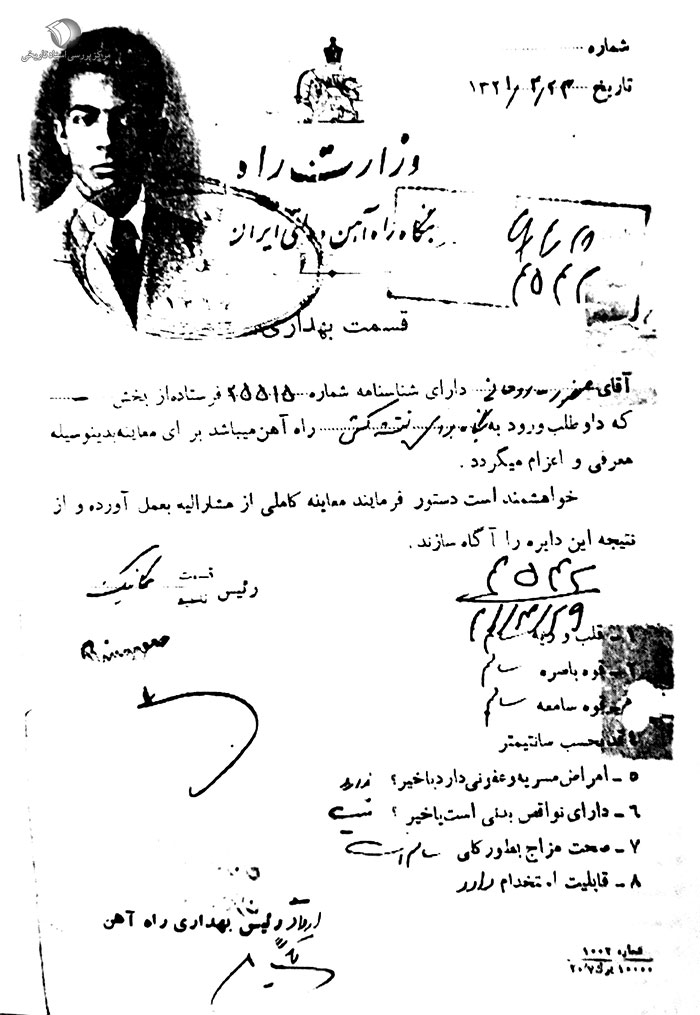 مرکز بررسی اسناد تاریخی
شماره
تاریخ ۱۳۲۱/۳/۲۳
وزارت راه
بنگاه راه آهن دولتی ایران
۴۵۴۲
قسمت بهداری
آقای روحانی دارای شناسنامه شماره ۲۵۵۱۵ فرستاده از بخش
که داوطلب ورود به نقشه کشی راه آهن میباشد برای معاینه بدینوسیله
معرفی و اعزام میگردد .
خواهشمند است دستور فرمایند معاینه کاملی از مشارالیه بعمل آورده و از
نتیجه این دایره را آگاه سازند .
رئیس قسمت مکانیک
۴۵۴۲
۲۱/۳/۲۹
۱ - قلب و ریه سالم
۲ - قوه باصره سالم
۳ - قوه سامعه سالم
۴ - قد بحسب سانتیمتر
۵ - امراض مسریه و عفونی دارد یا خیر؟ ندارد
۶ - دارای نواقص بدنی است یا خیر ؟ نیست
۷ - صحت مزاج بطور کلی سالم است
۸ - قابلیت استخدام دارد
رئیس بهداری راه آهن
شماره ۱۰۰۲